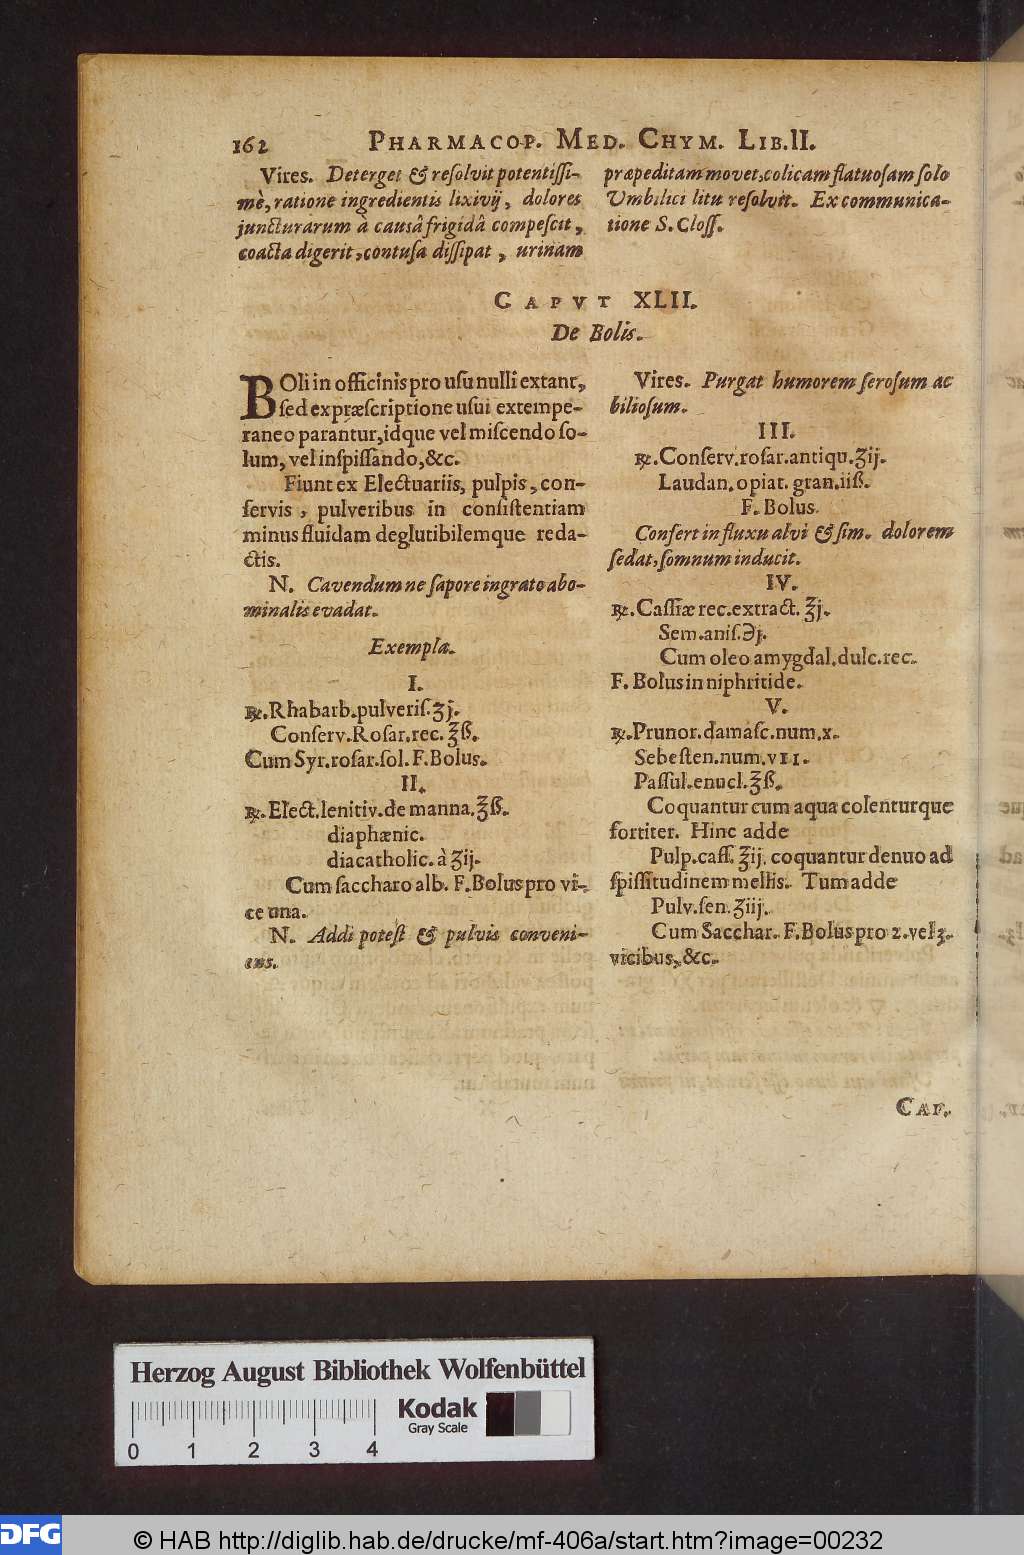 162 PHARMACOP. MED. CHYM. LIB. II.
Vires. Deterget & reſolvit potentiſſi-
mè, ratione ingredientis lixivij, dolores
juncturarum à causâ frigidâ compeſcit,
coacta digerit, contuſa diſſipat, urinam
præpeditam movet, colicam flatuoſam ſolo
Umbilici litu reſolvit. Ex communica-
tione S. Cloſſ.
CAPVT XLII.
De Bolis.
BOli in officinis pro uſu nulli extant,
ſed ex præſcriptione uſui extempe-
raneo parantur, idque vel miſcendo ſo-
lum, vel inſpiſſando, &c.
Fiunt ex Electuariis, pulpis, con-
ſervis, pulveribus in conſiſtentiam
minus fluidam deglutibilemque reda-
ctis.
N. Cavendum ne ſapore ingrato abo-
minalis evadat.
Exempla.
I.
℞. Rhabarb. pulveriſ. ʒj.
Conſerv. Roſar. rec. ℥ß.
Cum Syr. roſar. ſol. F. Bolus.
II.
℞. Elect. lenitiv. de manna. ℥ß.
diaphænic.
diacatholic. à ʒij.
Cum ſaccharo alb. F. Bolus pro vi-
ce una.
N. Addi poteſt & pulvis conveni-
ens.
Vires. Purgat humorem ſeroſum ac
bilioſum.
III.
℞. Conſerv. roſar. antiqu. ʒij.
Laudan. opiat. gran. iiß.
F. Bolus.
Confert in fluxu alvi & ſim. dolorem
ſedat, ſomnum inducit.
IV.
℞. Caſſiæ rec. extract. ℥j.
Sem. aniſ. ℈j.
Cum oleo amygdal. dulc. rec.
F. Bolus in niphritide.
V.
℞. Prunor. damaſc. num. x.
Sebeſten. num. VII.
Paſſul. enucl. ℥ß.
Coquantur cum aqua colenturque
fortiter. Hinc adde
Pulp. caſſ. ℥ij. coquantur denuo ad
ſpiſſitudinem mellis. Tum adde
Pulv. ſen. ʒiij.
Cum Sacchar. F. Bolus pro 2. vel 3.
vicibus, &c.
CAP.
Herzog August Bibliothek Wolfenbüttel
Kodak
Gray Scale
0 1 2 3 4
DFG © HAB http://diglib.hab.de/drucke/mf-406a/start.htm?image=00232